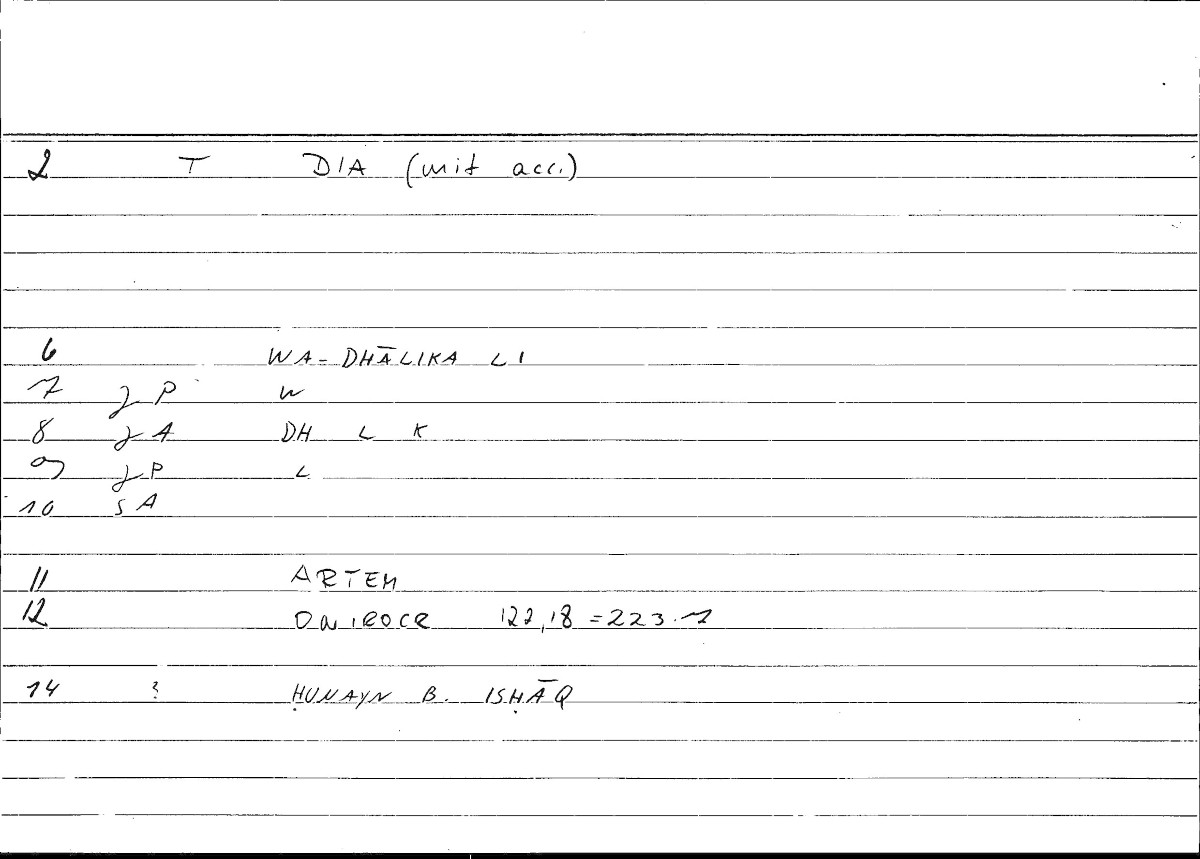 2 T DIA (mit acc.)
6 WA-DHĀLIKA LI
7 J P W
8 J A DH L K
9 J P L
10 S A
11 ARTEM
12 ONIROCR 122,18 = 223.7
14 ? ḤUNAYN B. ISḤĀQ